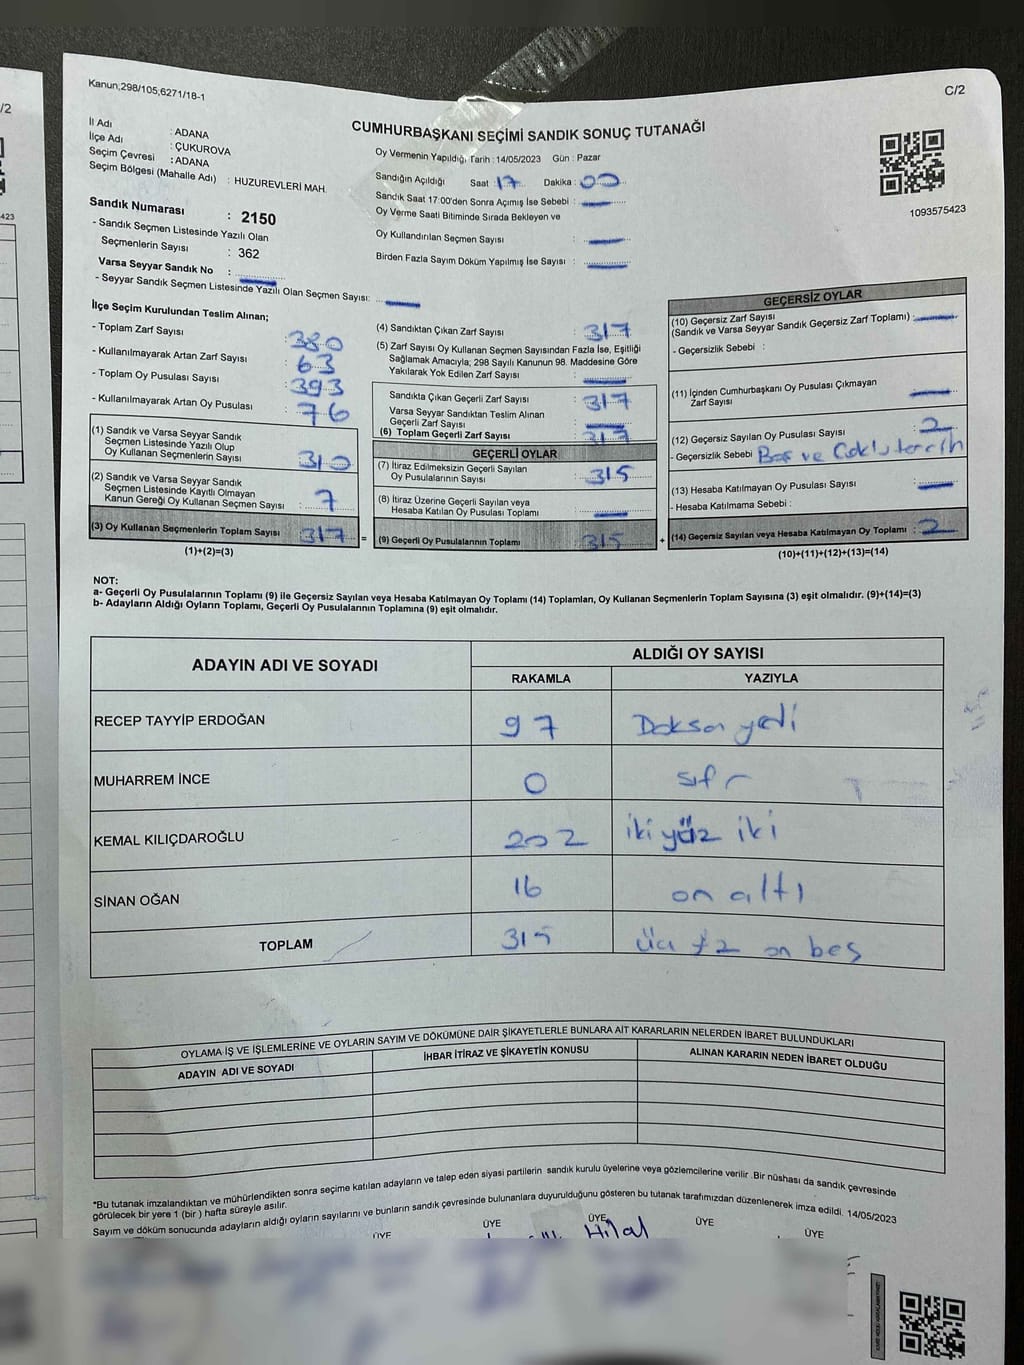 /2
423
Kanun;298/105,6271/18-1
C/2
CUMHURBAŞKANI SEÇİMİ SANDIK SONUÇ TUTANAĞI
İl Adı : ADANA
İlçe Adı : ÇUKUROVA
Seçim Çevresi : ADANA
Seçim Bölgesi (Mahalle Adı) : HUZUREVLERİ MAH.
Sandık Numarası : 2150
- Sandık Seçmen Listesinde Yazılı Olan
Seçmenlerin Sayısı : 362
Varsa Seyyar Sandık No :
- Seyyar Sandık Seçmen Listesinde Yazılı Olan Seçmen Sayısı:
Oy Vermenin Yapıldığı Tarih : 14/05/2023 Gün : Pazar
Sandığın Açıldığı Saat : 17 Dakika : 00
Sandık Saat 17:00'den Sonra Açımış İse Sebebi :
Oy Verme Saati Bitiminde Sırada Bekleyen ve
Oy Kullandırılan Seçmen Sayısı :
Birden Fazla Sayım Döküm Yapılmış İse Sayısı :
1093575423
İlçe Seçim Kurulundan Teslim Alınan;
- Toplam Zarf Sayısı : 380
- Kullanılmayarak Artan Zarf Sayısı : 63
- Toplam Oy Pusulası Sayısı : 393
- Kullanılmayarak Artan Oy Pusulası : 76
(1) Sandık ve Varsa Seyyar Sandık
Seçmen Listesinde Yazılı Olup
Oy Kullanan Seçmenlerin Sayısı 310
(2) Sandık ve Varsa Seyyar Sandık
Seçmen Listesinde Kayıtlı Olmayan
Kanun Gereği Oy Kullanan Seçmen Sayısı 7
(3) Oy Kullanan Seçmenlerin Toplam Sayısı 317
(1)+(2)=(3)
(4) Sandıktan Çıkan Zarf Sayısı : 317
(5) Zarf Sayısı Oy Kullanan Seçmen Sayısından Fazla İse, Eşitliği
Sağlamak Amacıyla, 298 Sayılı Kanunun 98. Maddesine Göre
Yakılarak Yok Edilen Zarf Sayısı :
Sandıkta Çıkan Geçerli Zarf Sayısı : 317
Varsa Seyyar Sandıktan Teslim Alınan
Geçerli Zarf Sayısı :
(6) Toplam Geçerli Zarf Sayısı : 317
GEÇERLİ OYLAR
(7) İtiraz Edilmeksizin Geçerli Sayılan
Oy Pusulalarının Sayısı : 315
(8) İtiraz Üzerine Geçerli Sayılan veya
Hesaba Katılan Oy Pusulası Toplamı :
= (9) Geçerli Oy Pusulalarının Toplamı 315
GEÇERSİZ OYLAR
(10) Geçersiz Zarf Sayısı
(Sandık ve Varsa Seyyar Sandık Geçersiz Zarf Toplamı) :
- Geçersizlik Sebebi :
(11) İçinden Cumhurbaşkanı Oy Pusulası Çıkmayan
Zarf Sayısı :
(12) Geçersiz Sayılan Oy Pusulası Sayısı : 2
- Geçersizlik Sebebi Boş ve Çoklu tercih
(13) Hesaba Katılmayan Oy Pusulası Sayısı :
- Hesaba Katılmama Sebebi :
+ (14) Geçersiz Sayılan veya Hesaba Katılmayan Oy Toplamı : 2
(10)+(11)+(12)+(13)=(14)
NOT:
a- Geçerli Oy Pusulalarının Toplamı (9) ile Geçersiz Sayılan veya Hesaba Katılmayan Oy Toplamı (14) Toplamları, Oy Kullanan Seçmenlerin Toplam Sayısına (3) eşit olmalıdır. (9)+(14)=(3)
b- Adayların Aldığı Oyların Toplamı, Geçerli Oy Pusulalarının Toplamına (9) eşit olmalıdır.
ADAYIN ADI VE SOYADI
ALDIĞI OY SAYISI
RAKAMLA YAZIYLA
RECEP TAYYİP ERDOĞAN 97 Doksan yedi
MUHARREM İNCE 0 sıfır
KEMAL KILIÇDAROĞLU 202 iki yüz iki
SİNAN OĞAN 16 on altı
TOPLAM 315 on beş
OYLAMA İŞ VE İŞLEMLERİNE VE OYLARIN SAYIM VE DÖKÜMÜNE DAİR ŞİKAYETLERLE BUNLARA AİT KARARLARIN NELERDEN İBARET BULUNDUKLARI
ADAYIN ADI VE SOYADI İHBAR İTİRAZ VE ŞİKAYETİN KONUSU ALINAN KARARIN NEDEN İBARET OLDUĞU
*Bu tutanak imzalandıktan ve mühürlendikten sonra seçime katılan adayların ve talep eden siyasi partilerin sandık kurulu üyelerine veya gözlemcilerine verilir .Bir nüshası da sandık çevresinde
görülecek bir yere 1 (bir ) hafta süreyle asılır.
Sayım ve döküm sonucunda adayların aldığı oyların sayılarını ve bunların sandık çevresinde bulunanlara duyurulduğunu gösteren bu tutanak tarafımızdan düzenlenerek imza edildi. 14/05/2023
ÜYE ÜYE ÜYE ÜYE ÜYE
Hilal